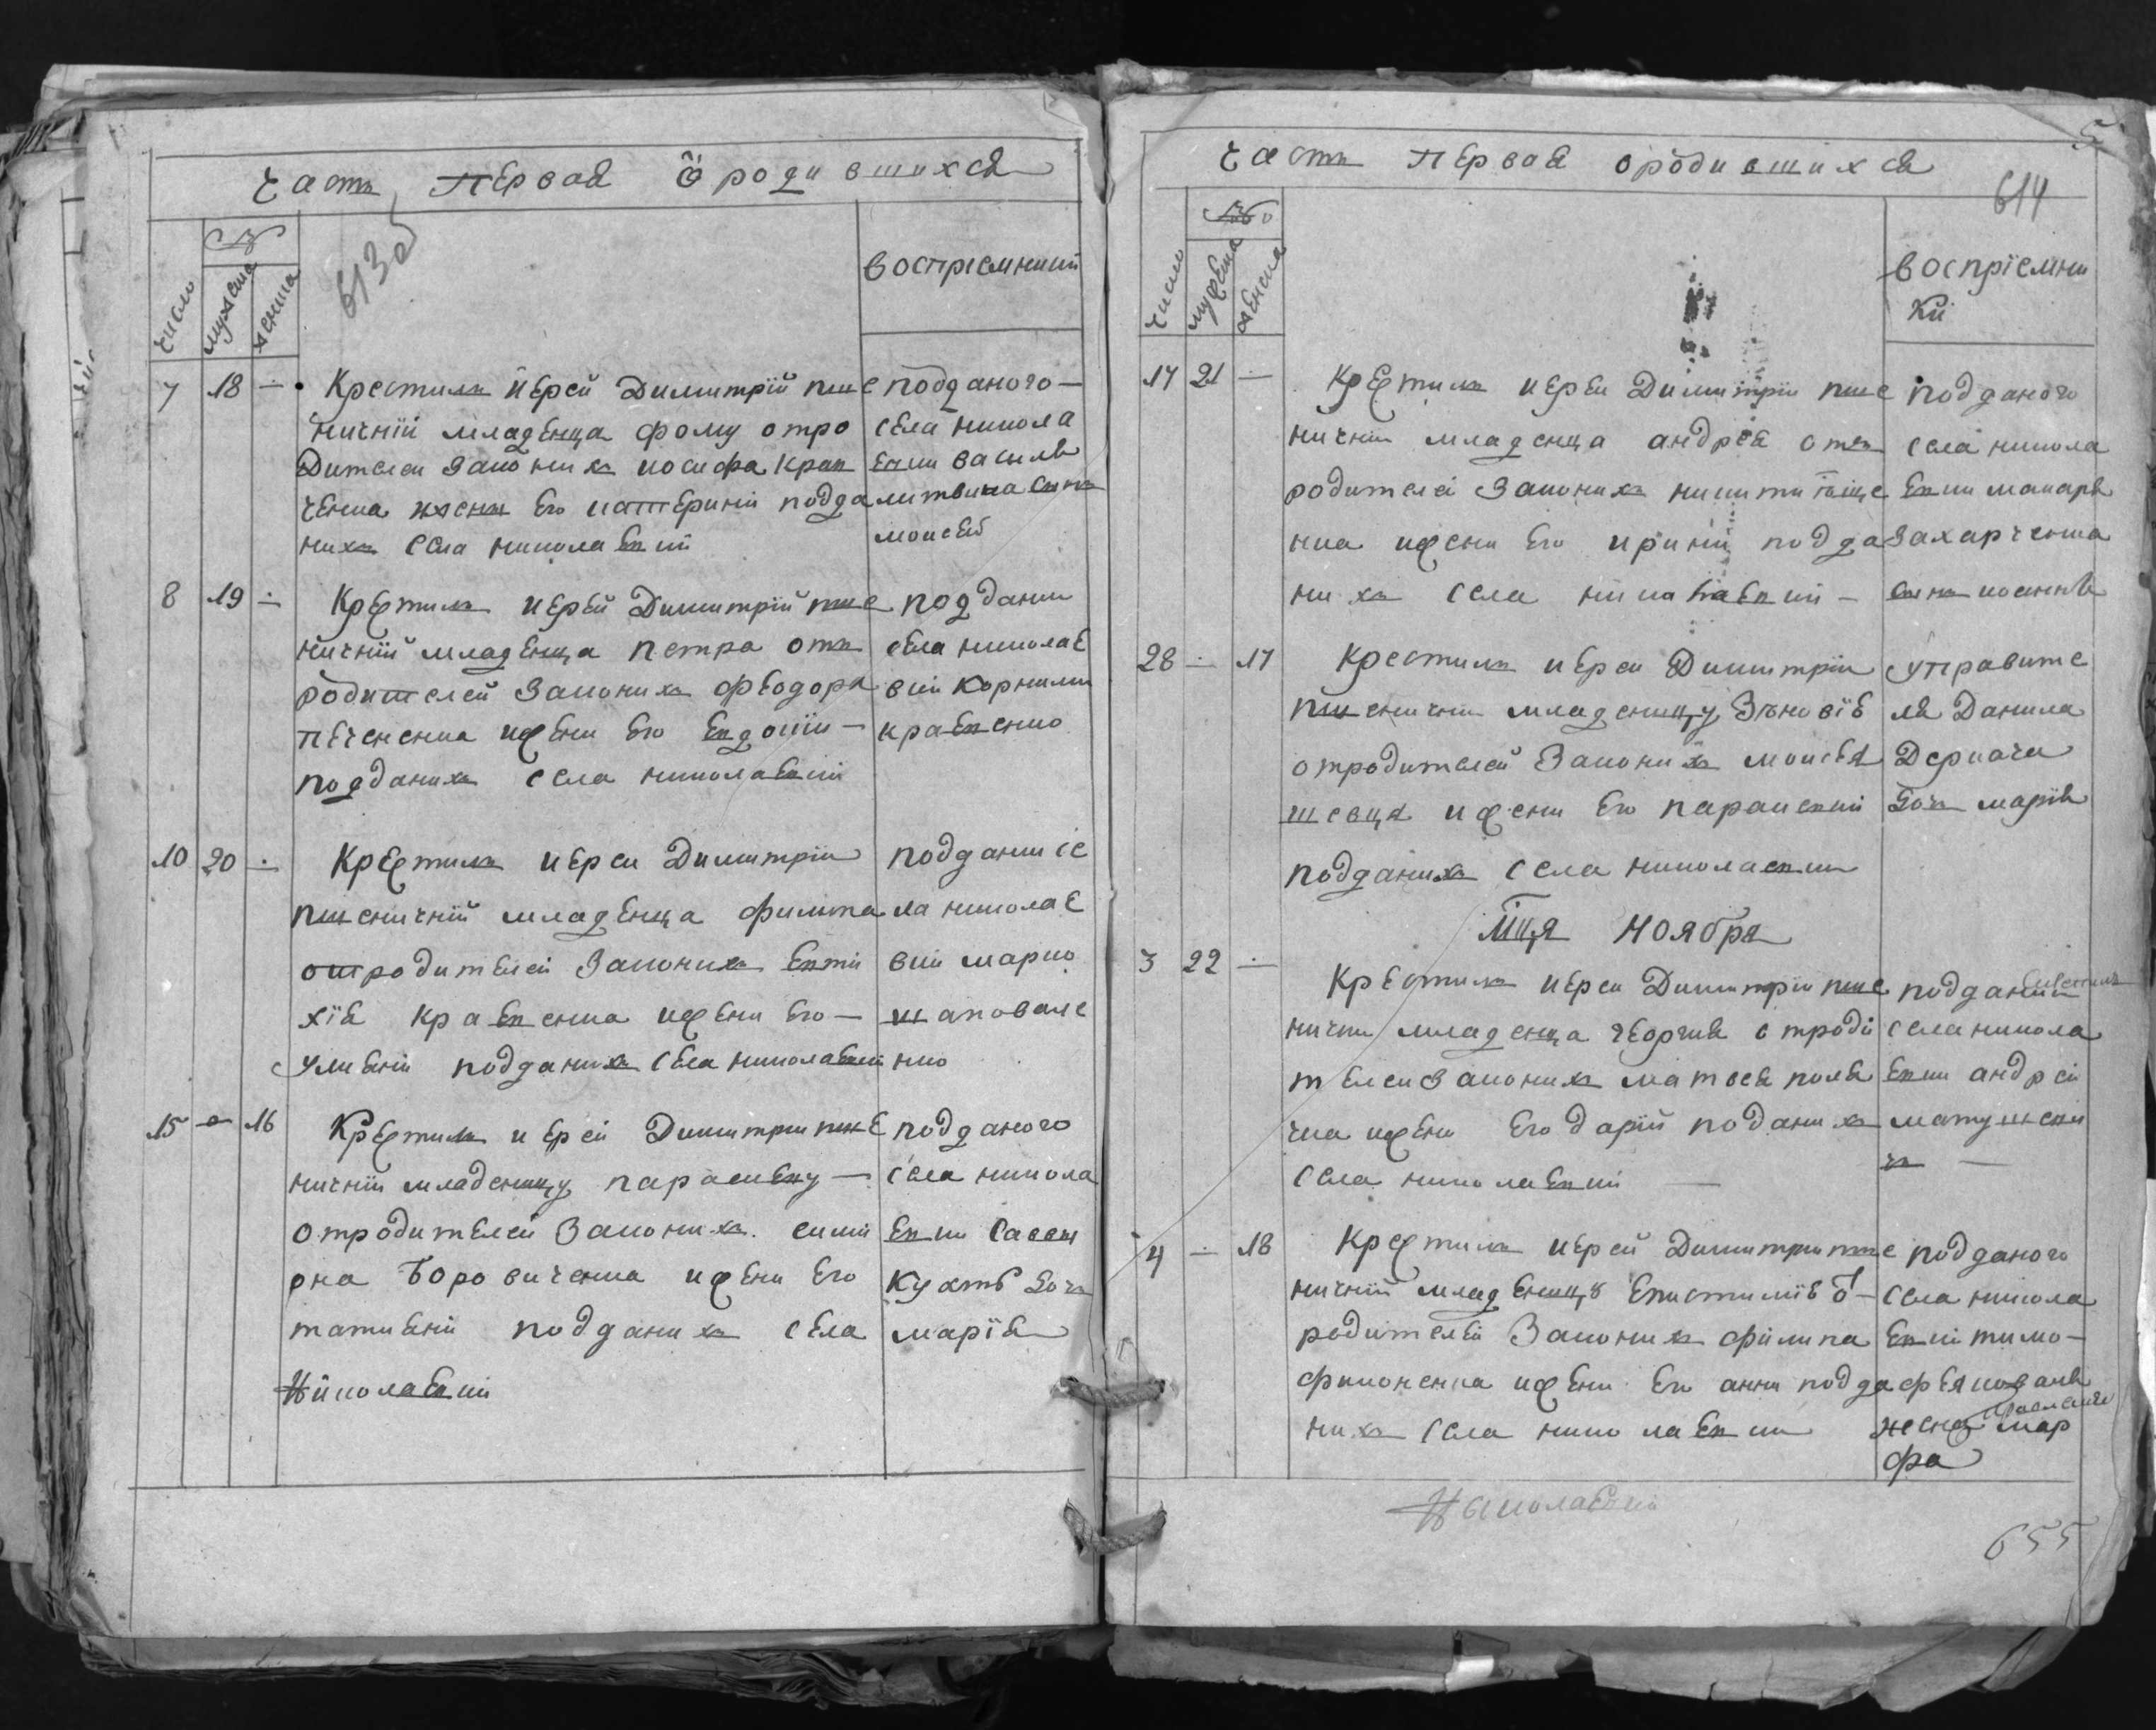 часть первая ѿ родившихся
613об
число
№
мужеска
женска
воспріемники
7 18 —
Крестилъ іерей Димитрій пше
ничній младенца фому отро
дителей законихъ иосифа крав
ченка жени его катерини подда
нихъ села николаевки
подданого —
села никола
евки василя
литвина синъ
моисей
8 19 —
Крестилъ иерей Димитрій пше
ничній младенца петра отъ
родителей законихъ феодора
печененка ижени его евдокіи —
подданихъ села николаевки
подданий
села николае
вки корнилий
кравченко
10 20 —
Крестилъ иерей Димитрій
пшеничній младенца филипа
отродителей законихъ евти
хія кравченка ижени его —
улияни подданихъ села николаевки
поддании се
ла николае
вки марко
шаповале
нко
15 — 16
Крестилъ иерей Димитрии пше
ничнии младеницу параскеву —
отродителей законихъ сими
она боровиченка ижени его
татияни подданихъ села
Николаевки
подданого
села никола
евки саввы
кухтѣ дочь
марія
часть первая ородившихся
5
614
число
№
мужеска
женска
воспріемни
ки
17 21 —
Крестилъ иереи Димитріи пше
ничніи младенца андрея отъ
родителей законихъ никити тище
нка ижени его ирини подда
нихъ села николаевки —
подданого
села никола
евки макаря
захарченка
синъ иоаннъ
28 — 17
Крестилъ иереи Димитріи
пшеничніи младеницу Зѣновію
отродителей законихъ моисея
шевця ижени его параскеви
подданихъ села николаевки
управите
ля Данила
Деркача
дочъ марія
Мця Ноября
3 22 —
Крестилъ иереи Димитріи пше
ничнии младенца георгия отроди
телеи законихъ матвея поля
чка ижени его дарій поданихъ
села николаевки —
подданий
села никола
евки андрей
матушенк
—
4 — 18
Крестилъ иерей Димитрии пше
ничній младеницу епистимію ѿ —
родителей законихъ филипа
филоненка ижени его анни подда
нихъ села николаевки
подданого
села никола
евки тимо —
фея
жена мар
фа
Николаевки
655